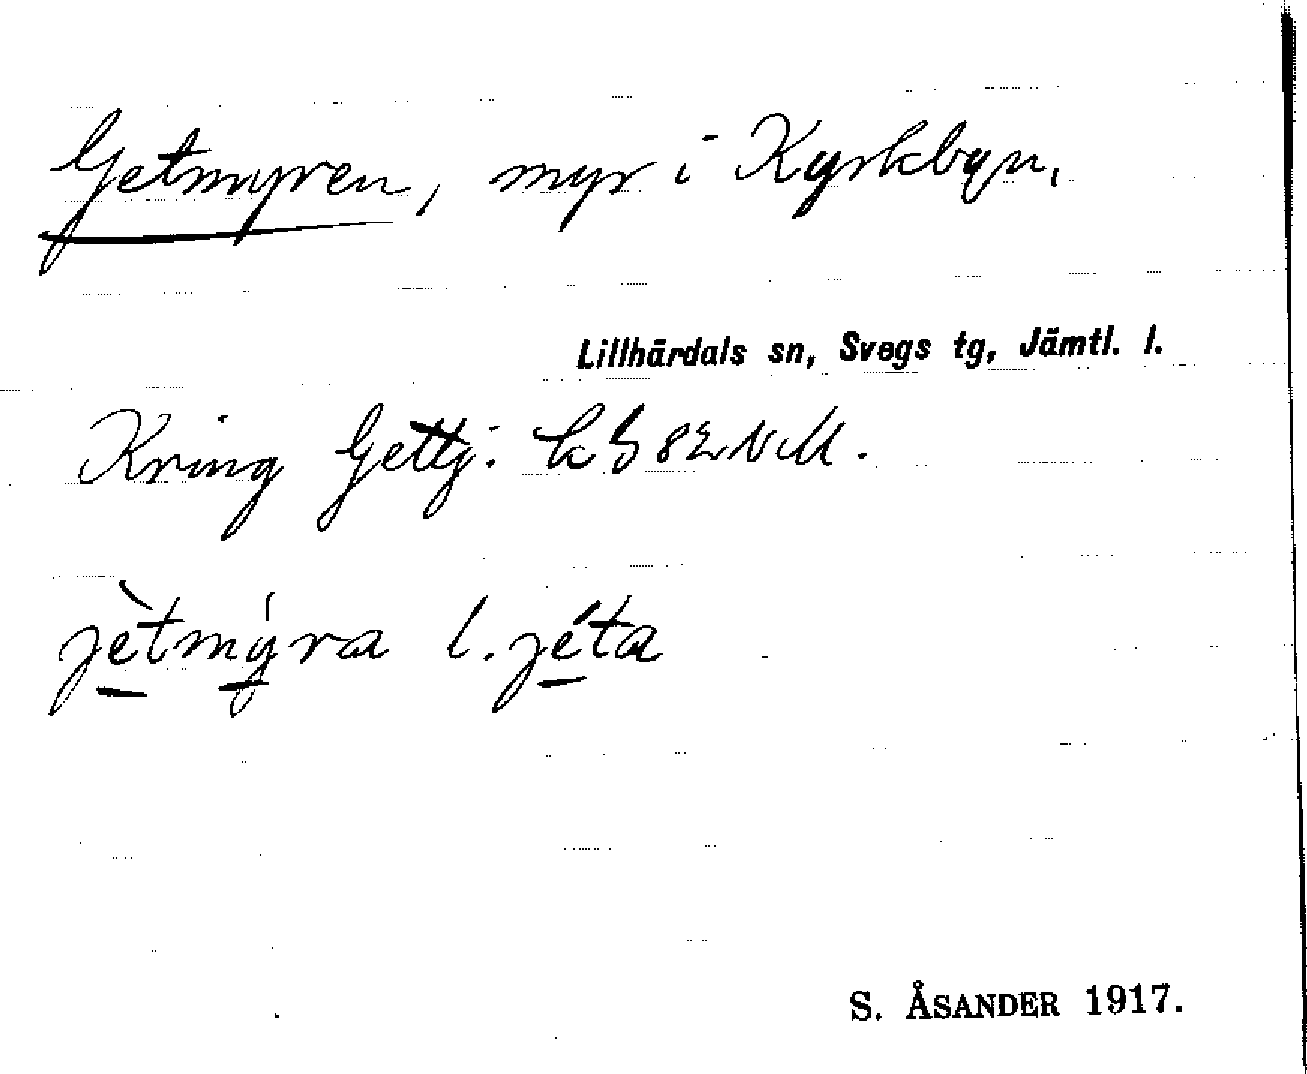 Getmyren, myr i Kyrkbyn.
Lillhärdals sn, Svegs tg, Jämtl. l.
Kring Gettj:
jètmýra l. jéta
S. ÅSANDER 1917.